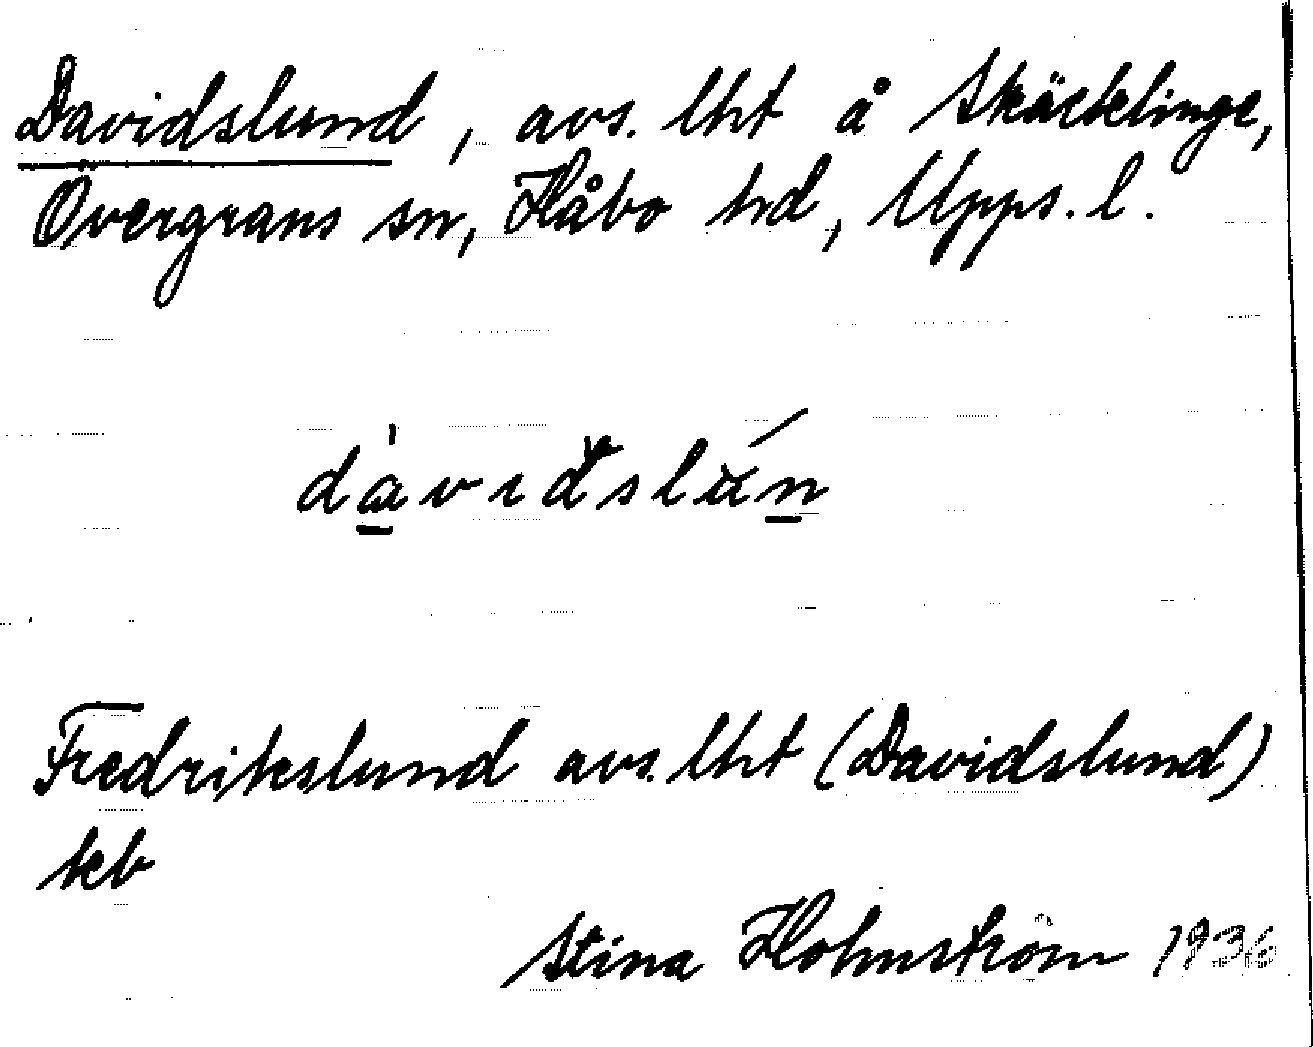 Davidslund, avs. lht å Skäcklinge,
Övergrans sn, Håbo hd, Upps. l.
Fredrikslund avs. lht (Davidslund)
kb
Stina Holmström 1936